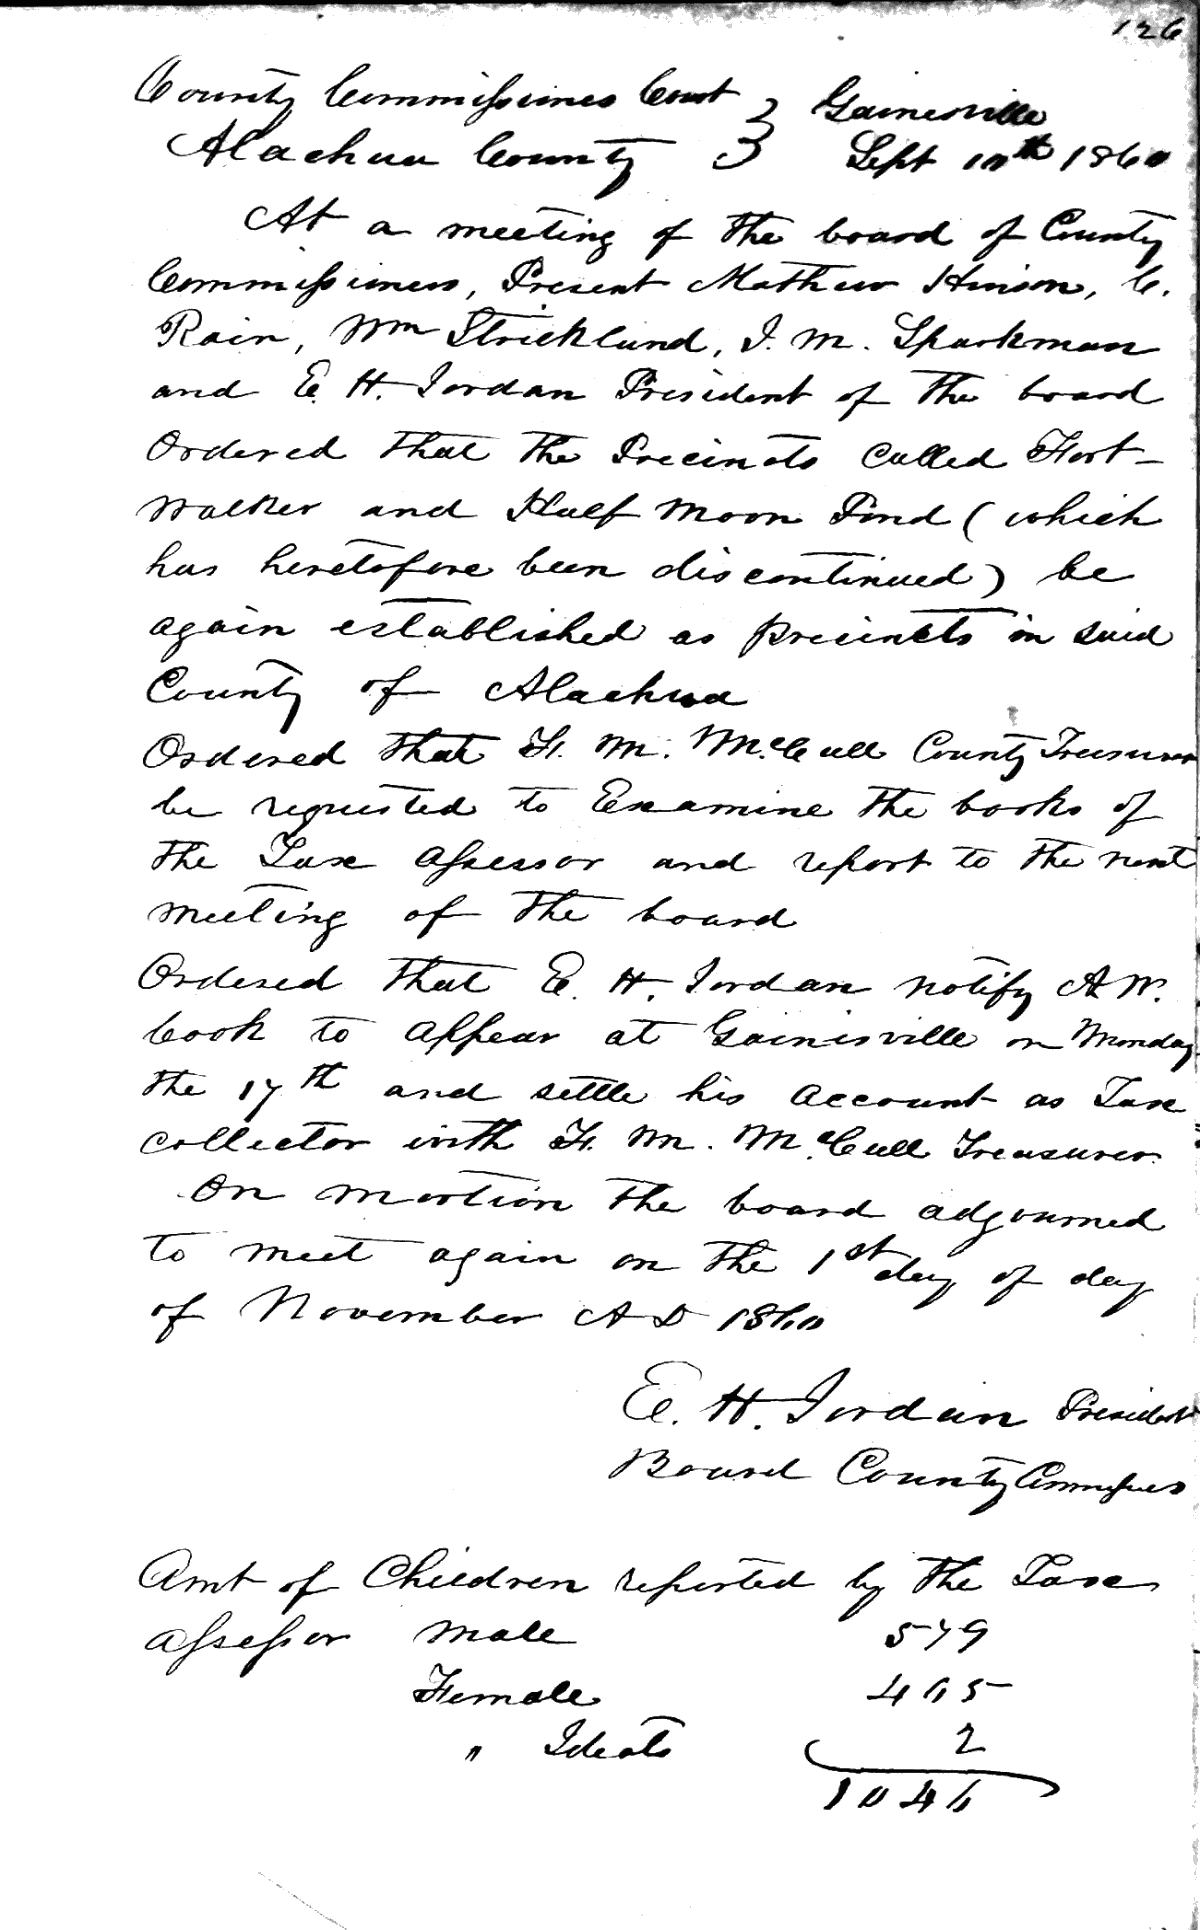 126
County Commissiones Court } Gainesville
Alachua County } Sept 10th 1860
At a meeting of the board of County
Commissioners, Present Mathew Hinson, C.
Rain, Wm Strickland, J. M. Sparkman
and E. H. Jordan President of the board
Ordered that the Precincts called Fort-
Walker and Half Moon Pond (which
has heretofore been discontinued) be
again established as precincts in said
County of Alachua
Ordered that F. M. McCall County Treasurer
be requested to Examine the books of
the Tax Assessor and report to the next
meeting of the board
Ordered that E. H. Jordan notify A. W.
Cook to appear at Gainesville on Monday
the 17th and settle his account as Tax
collector with F. M. McCall Treasurer
On motion the board adjourned
to meet again on the 1st day of day
of November A D 1860
E. H. Jordan President
Board County Commissiones
Amt of Children reported by the Tax
assessor Male 579
Female 465
" Ideots 2
1046